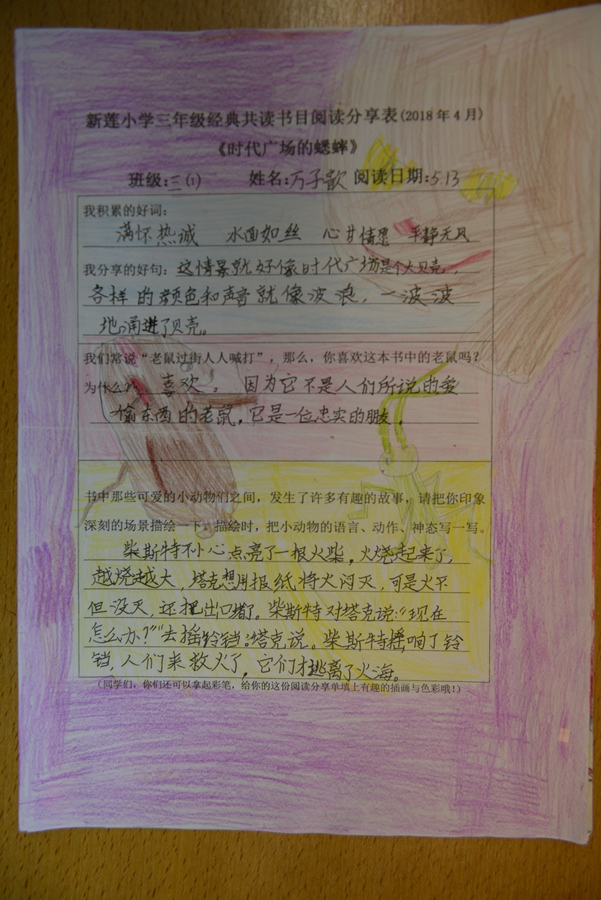 新莲小学三年级经典共读书目阅读分享表(2018年4月)
《时代广场的蟋蟀》
班级:三(1) 姓名:万子歆 阅读日期:5.13
我积累的好词:
满怀热诚 水面如丝 心甘情愿 平静无风
我分享的好句:这情景就好像时代广场是个大贝壳,
各样的颜色和声音就像波浪,一波波
地涌进了贝壳。
我们常说“老鼠过街人人喊打”,那么,你喜欢这本书中的老鼠吗?
为什么? 喜欢。因为它不是人们所说的爱
偷东西的老鼠,它是一位忠实的朋友。
书中那些可爱的小动物们之间,发生了许多有趣的故事,请把你印象
深刻的场景描绘一下。描绘时,把小动物的语言、动作、神态写一写。
柴斯特不小心点亮了一根火柴,火烧起来了,
越烧越大,塔克想用报纸将火闷灭,可是火不
但没灭,还把出口堵了。柴斯特对塔克说:“现在
怎么办?”“去摇铃铛。”塔克说。柴斯特摇响了铃
铛,人们来救火了,它们才逃离了火海。
(同学们,你们还可以拿起彩笔,给你的这份阅读分享单填上有趣的插画与色彩哦!)